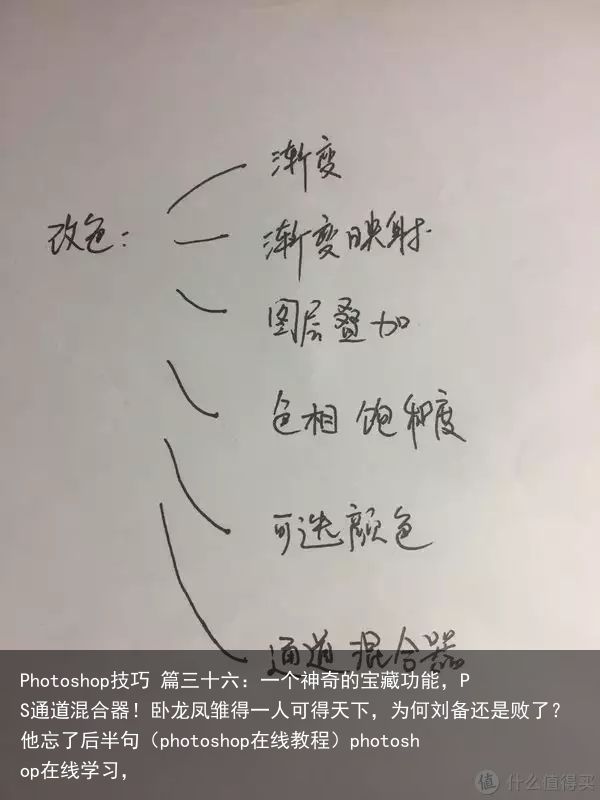 渐变
改色：
渐变映射
图层叠加
色相 饱和度
可选颜色
通道混合器
Photoshop技巧 篇三十六：一个神奇的宝藏功能，P
S通道混合器！卧龙凤雏得一人可得天下，为何刘备还是败了？
他忘了后半句（photoshop在线教程）photosh
op在线学习，
值 什么值得买